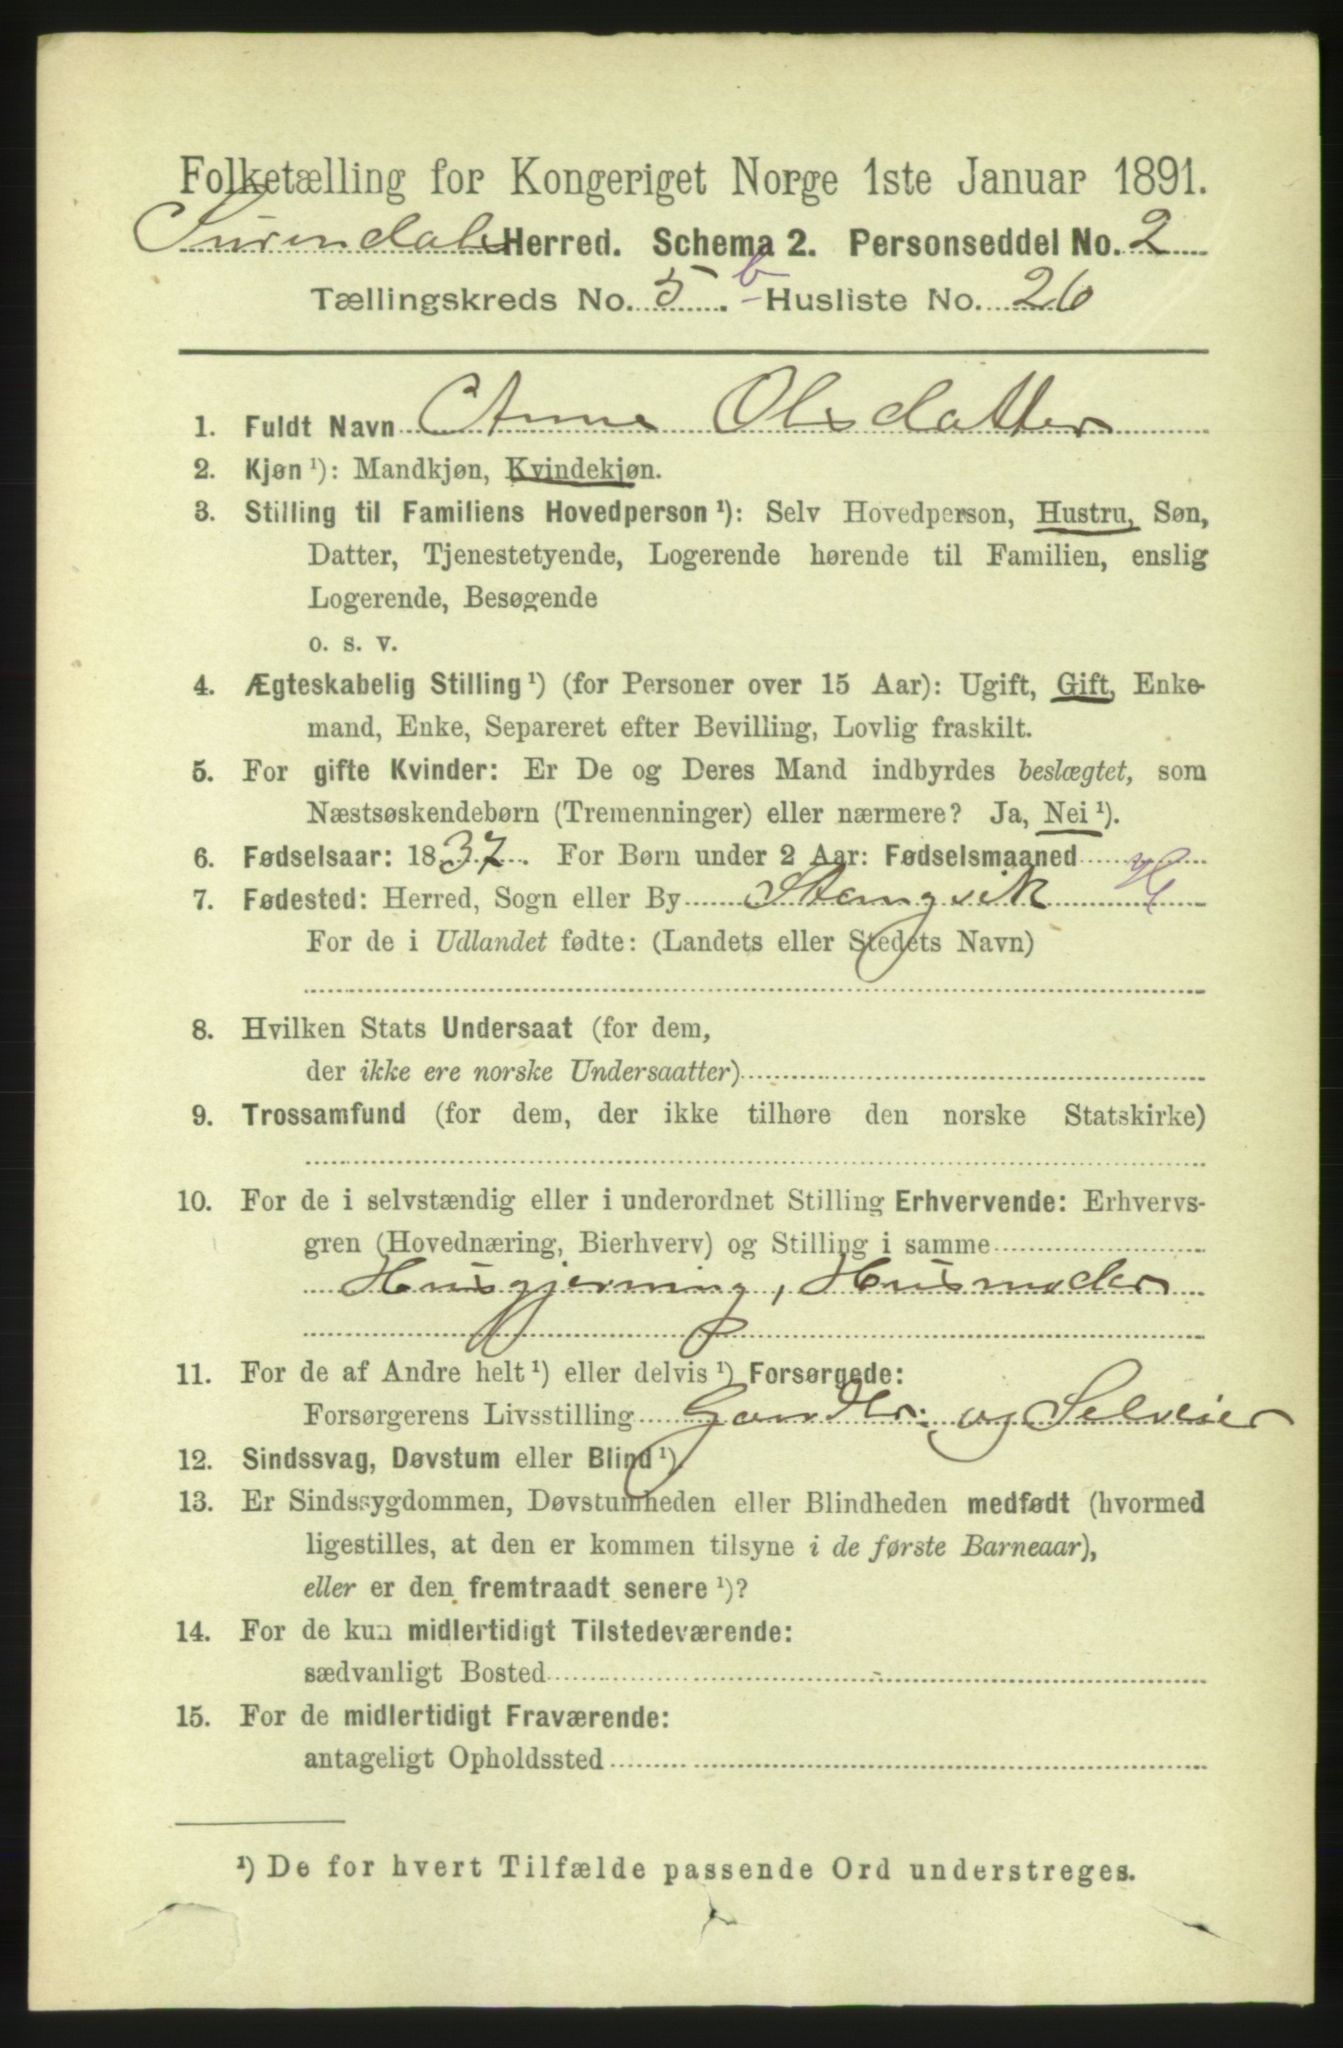 Folketælling for Kongeriget Norge 1ste Januar 1891.
Surendals Herred. Schema 2. Personseddel No. 2
Tællingskreds No. 5 b Husliste No. 26
1. Fuldt Navn Anne Olsdatter
2. Kjøn ¹): Mandkjøn, Kvindekjøn.
3. Stilling til Familiens Hovedperson ¹): Selv Hovedperson, Hustru, Søn,
Datter, Tjenestetyende, Logerende hørende til Familien, enslig
Logerende, Besøgende
o. s. v.
4. Ægteskabelig Stilling ¹) (for Personer over 15 Aar): Ugift, Gift, Enke-
mand, Enke, Separeret efter Bevilling, Lovlig fraskilt.
5. For gifte Kvinder: Er De og Deres Mand indbyrdes beslægtet, som
Næstsøskendebørn (Tremenninger) eller nærmere? Ja, Nei ¹).
6. Fødselsaar: 1837. For Børn under 2 Aar: Fødselsmaaned
7. Fødested: Herred, Sogn eller By Stangvik
For de i Udlandet fødte: (Landets eller Stedets Navn)
8. Hvilken Stats Undersaat (for dem,
der ikke ere norske Undersaatter)
9. Trossamfund (for dem, der ikke tilhøre den norske Statskirke)
10. For de i selvstændig eller i underordnet Stilling Erhvervende: Erhvervs-
gren (Hovednæring, Bierhverv) og Stilling i samme
Husgjerning, Husmoder
11. For de af Andre helt ¹) eller delvis ¹) Forsørgede:
Forsørgerens Livsstilling og Selveier
12. Sindssvag, Døvstum eller Blind ¹).
13. Er Sindssygdommen, Døvstumheden eller Blindheden medfødt (hvormed
ligestilles, at den er kommen tilsyne i de første Barneaar),
eller er den fremtraadt senere ¹)?
14. For de kun midlertidigt Tilstedeværende:
sædvanligt Bosted
15. For de midlertidigt Fraværende:
antageligt Opholdssted
¹) De for hvert Tilfælde passende Ord understreges.